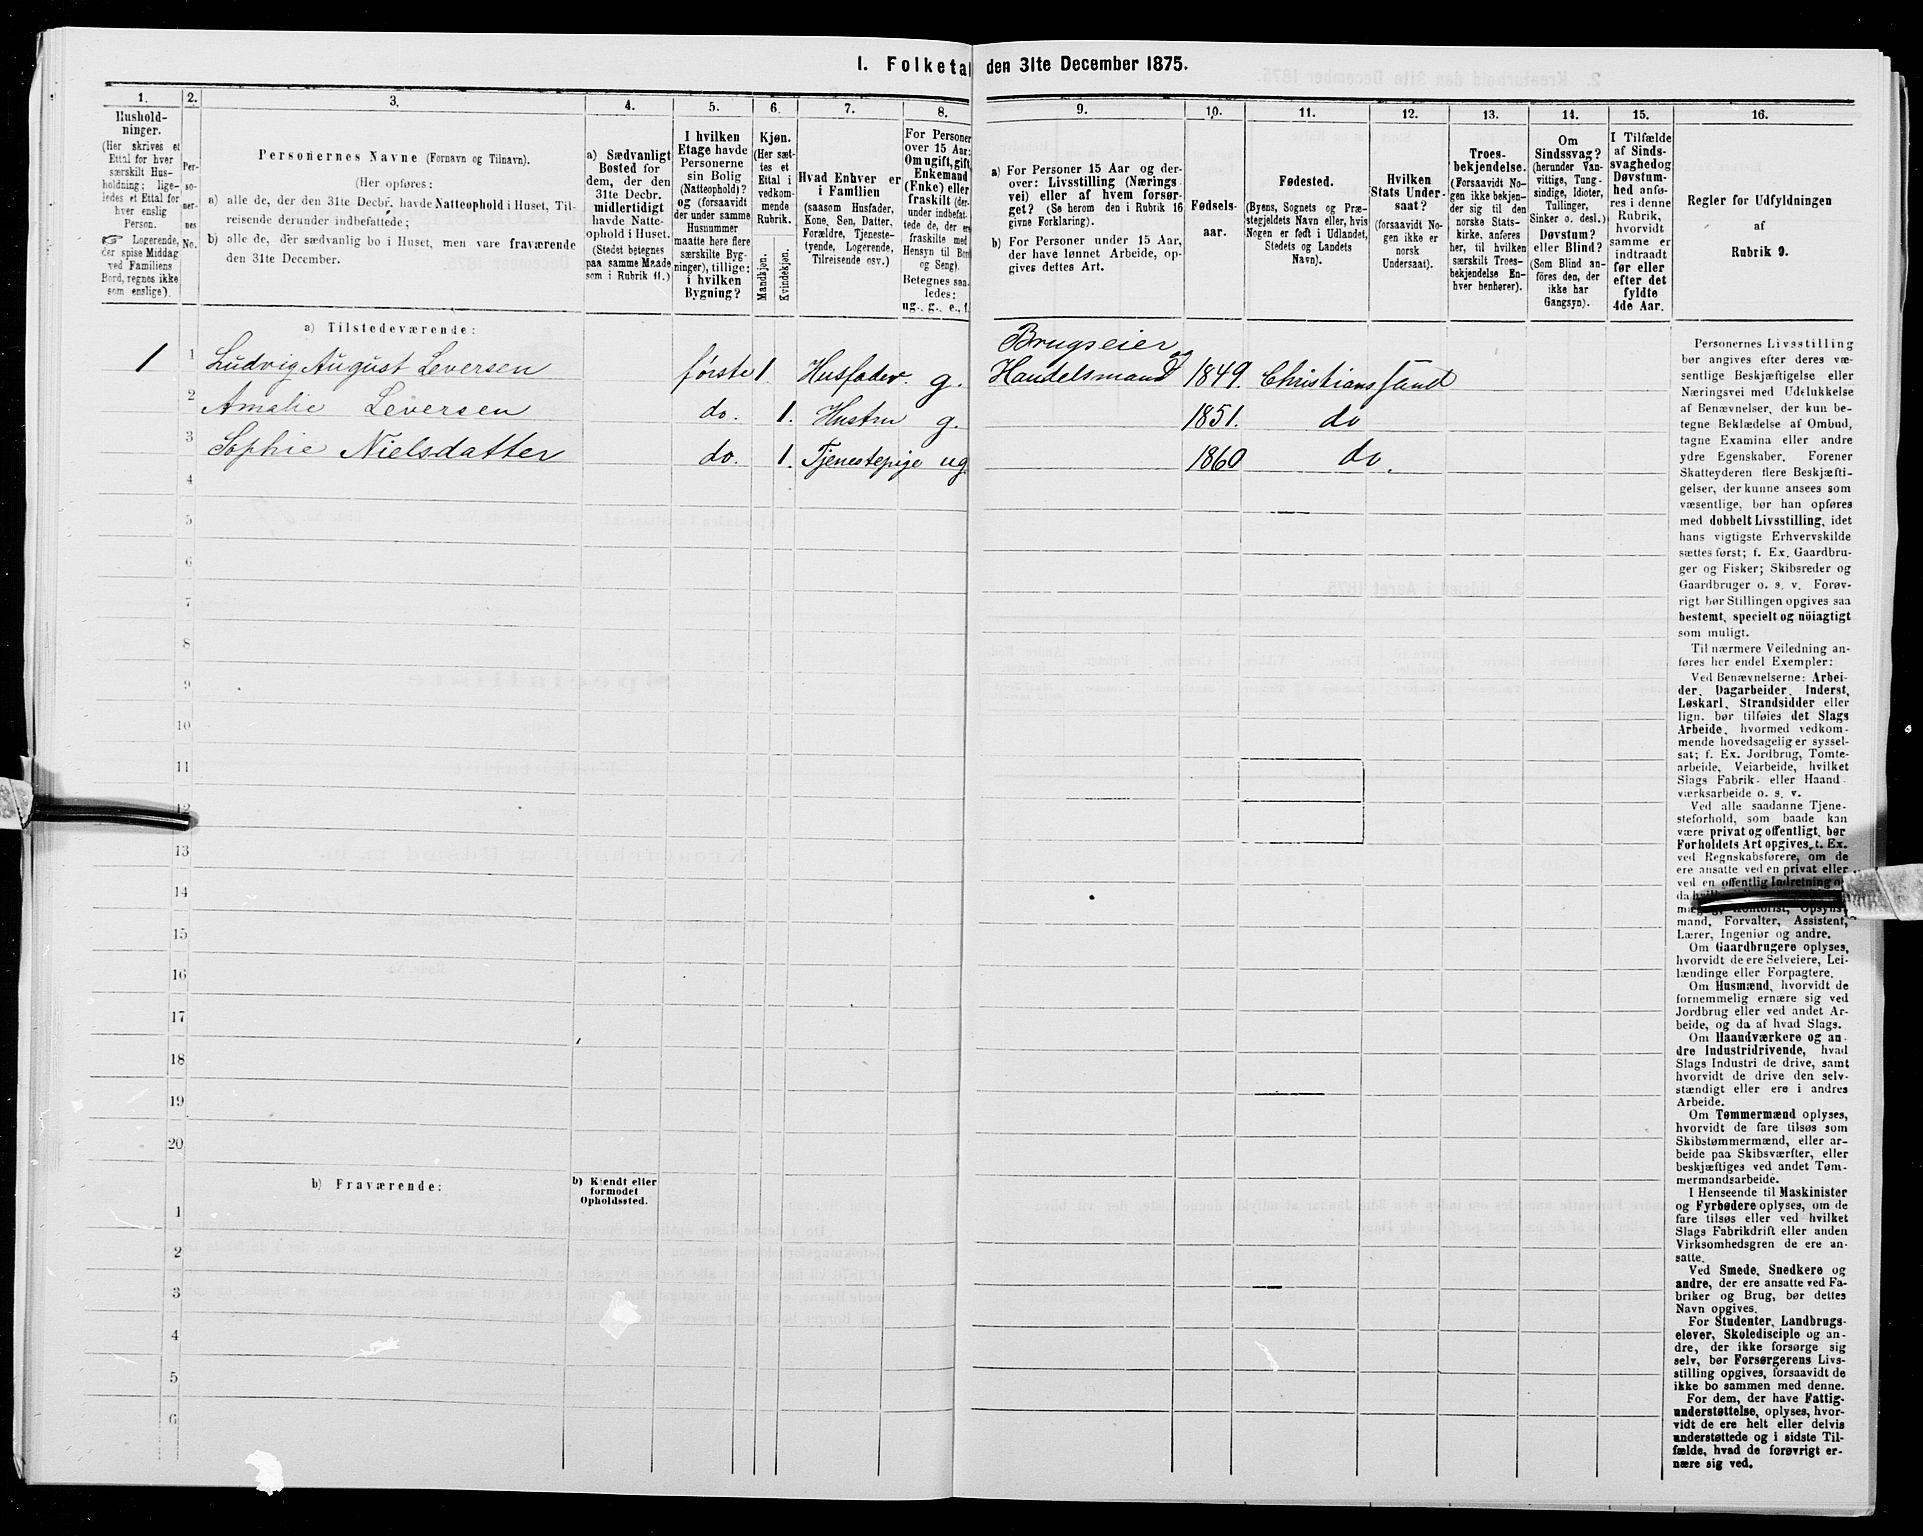 1. Folketal den 31te December 1875.
1.
Hushold-
ninger.
(Her skrives et
Ettal for hver
særskilt Hus-
holdning; lige-
ledes et Ettal for
hver enslig
Person.
☞ Logerende,
der spise Middag
ved Familiens
Bord, regnes ikke
som enslige).
2.
Per-
so-
ner-
nes
No.
3.
Personernes Navne (Fornavn og Tilnavn).
(Her opføres:
a) alle de, der den 31te Decbr. havde Natteophold i Huset, Til-
reisende derunder indbefattede;
b) alle de, der sædvanlig bo i Huset, men vare fraværende
den 31te December.
4.
a) Sædvanligt
Bosted for
dem, der den
31te Decbr.
midlertidigt
havde Natte-
ophold i Huset.
(Stedet betegnes
paa samme Maade
som i Rubrik 11.)
5.
I hvilken
Etage havde
Personerne
sin Bolig
(Natteophold)?
og (forsaavidt
der under samme
Husnummer
maatte høre flere
særskilte Byg-
ninger), tillige:
i hvilken
Bygning?
6.
Kjøn.
(Her sæt-
tes et
Ettal i
vedkom-
mende
Rubrik.
Mandkjøn.
Kvindekjøn.
7.
Hvad Enhver er
i Familien
(saasom Husfader,
Kone, Søn, Datter,
Forældre, Tjeneste-
tyende, Logerende,
Tilreisende osv.)
8.
For Personer
over 15 Aar:
Om ugift, gift,
Enkemand
(Enke) eller
fraskilt (der-
under indbefat-
tede de, der ere
fraskilte med
Hensyn til Bord
og Seng).
Betegnes saa-
ledes:
ug., g., e., f.
9.
a) For Personer 15 Aar og der-
over: Livsstilling (Nærings
vei) eller af hvem forsør-
get? (Se herom den i Rubrik 16
givne Forklaring).
b) For Personer under 15 Aar,
der have lønnet Arbeide, op-
gives dettes Art.
10.
Fødsels-
aar.
11.
Fødested.
(Byens, Sognets og Præ-
stegjeldets Navn eller, hvis
Nogen er født i Udlandet,
Stedets og Landets
Navn).
12.
Hvilken
Stats Under-
saat?
(forsaavidt No-
gen ikke er
norsk
Undersaat).
13.
Troes-
bekjendelse.
(Forsaavidt No-
gen ikke bekjen-
der sig til den
norske Stats-
kirke, anføres
her, til hvilken
særskilt Troes-
bekjendelse En-
hver henhører).
14.
Om
Sindssvag?
(herunder Van-
vittige, Tung-
sindige, Idioter,
Tullinger,
Sinker o. desl.)
Døvstum?
eller Blind?
(Som Blind an-
føres den, der
ikke har
Gangsyn).
15.
I Tilfælde
af Sinds-
svaghed og
Døvstum-
hed anfø-
res i denne
Rubrik,
hvorvidt
samme er
indtraadt
før eller
efter det
fyldte
4de Aar.
16.
Regler for Udfyldningen
af
Rubrik 9.
a) Tilstedeværende:
1 1 Ludvig August Leversen første 1. Husfader. g. Brugseier og
Handelsmand 1849. Christianssand
2 Amalie Leversen do. 1. Hustru g. 1851. do
3 Sophie Nielsdatter do. 1. Tjenestepige ug. 1860 do.
4
5
6
7
8
9
10
11
12
13
14
15
16
17
18
19
20
b) Fraværende:
b) Kjendt eller
formodet
Opholdssted.
1
2
3
4
5
6
Personernes Livsstilling
bør angives efter deres væ-
sentlige Beskjæftigelse eller
Næringsvei med Udelukkelse
af Benævnelser, der kun be-
tegne Beklædelse af Ombud,
tagne Examina eller andre
ydre Egenskaber. Forener
Skatteyderen flere Beskjæfti-
gelser, der kunne ansees som
væsentlige, bør han opføres
med dobbelt Livsstilling, idet
hans vigtigste Erhvervskilde
sættes først; f. Ex. Gaardbru-
ger og Fisker; Skibsreder og
Gaardbruger o. s. v. Forøv-
rigt bør Stillingen opgives saa
bestemt, specielt og nöiagtigt
som muligt.
Til nærmere Veiledning an-
føres her endel Exempler:
Ved Benævnelserne: Arbei-
der, Dagarbeider, Inderst,
Løskarl, Strandsidder eller
lign. bør tilføies det Slags
Arbeide, hvormed vedkom-
mende hovedsagelig er syssel-
sat; f. Ex. Jordbrug, Tomte-
arbeide, Veiarbeide, hvilket
Slags Fabrik- eller Haand-
værksarbeide o. s. v.
Ved alle saadanne Tjene-
steforhold, som baade kan
være privat og offentligt, bør
Forholdets Art opgives, t. Ex.
ved Regnskabsførere, om de
ere ansatte ved en privat eller
ved en offentlig Indretning
mand, Forvalter, Assistent,
Lærer, Ingeniør og andre.
Om Gaardbrugere oplyses,
hvorvidt de ere Selveiere, Lei-
lændinge eller Forpagtere.
Om Husmænd, hvorvidt de
fornemmelig ernære sig ved
Jordbrug eller ved andet Ar-
beide, og da af hvad Slags.
Om Haandværkere og an-
dre Industridrivende, hvad
Slags Industri de drive, samt
hvorvidt de drive den selv-
stændigt eller ere i andres
Arbeide.
Om Tømmermænd oplyses,
hvorvidt de fare tilsøs som
Skibstømmermænd, eller ar-
beide paa Skibsværfter, eller
beskjæftiges ved andet Tøm-
mermandsarbeide.
I Henseende til Maskinister
og Fyrbødere oplyses, om de
fare tilsøs eller ved hvilket
Slags Fabrikdrift eller anden
Virksomhedsgren de ere an-
satte.
Ved Smede, Snedkere og
andre, der ere ansatte ved Fa-
briker og Brug, bør dettes
Navn opgives.
For Studenter, Landbrugs-
elever, Skoledisciple og an-
dre, der ikke forsørge sig
selv, bør Forsørgerens Livs-
stilling opgives, forsaavidt de
ikke bo sammen med denne.
For dem, der have Fattig-
understøttelse, oplyses, hvor-
vidt de ere helt eller delvis
understøttede og i sidste Til-
fælde, hvad de forøvrigt er-
nære sig ved.